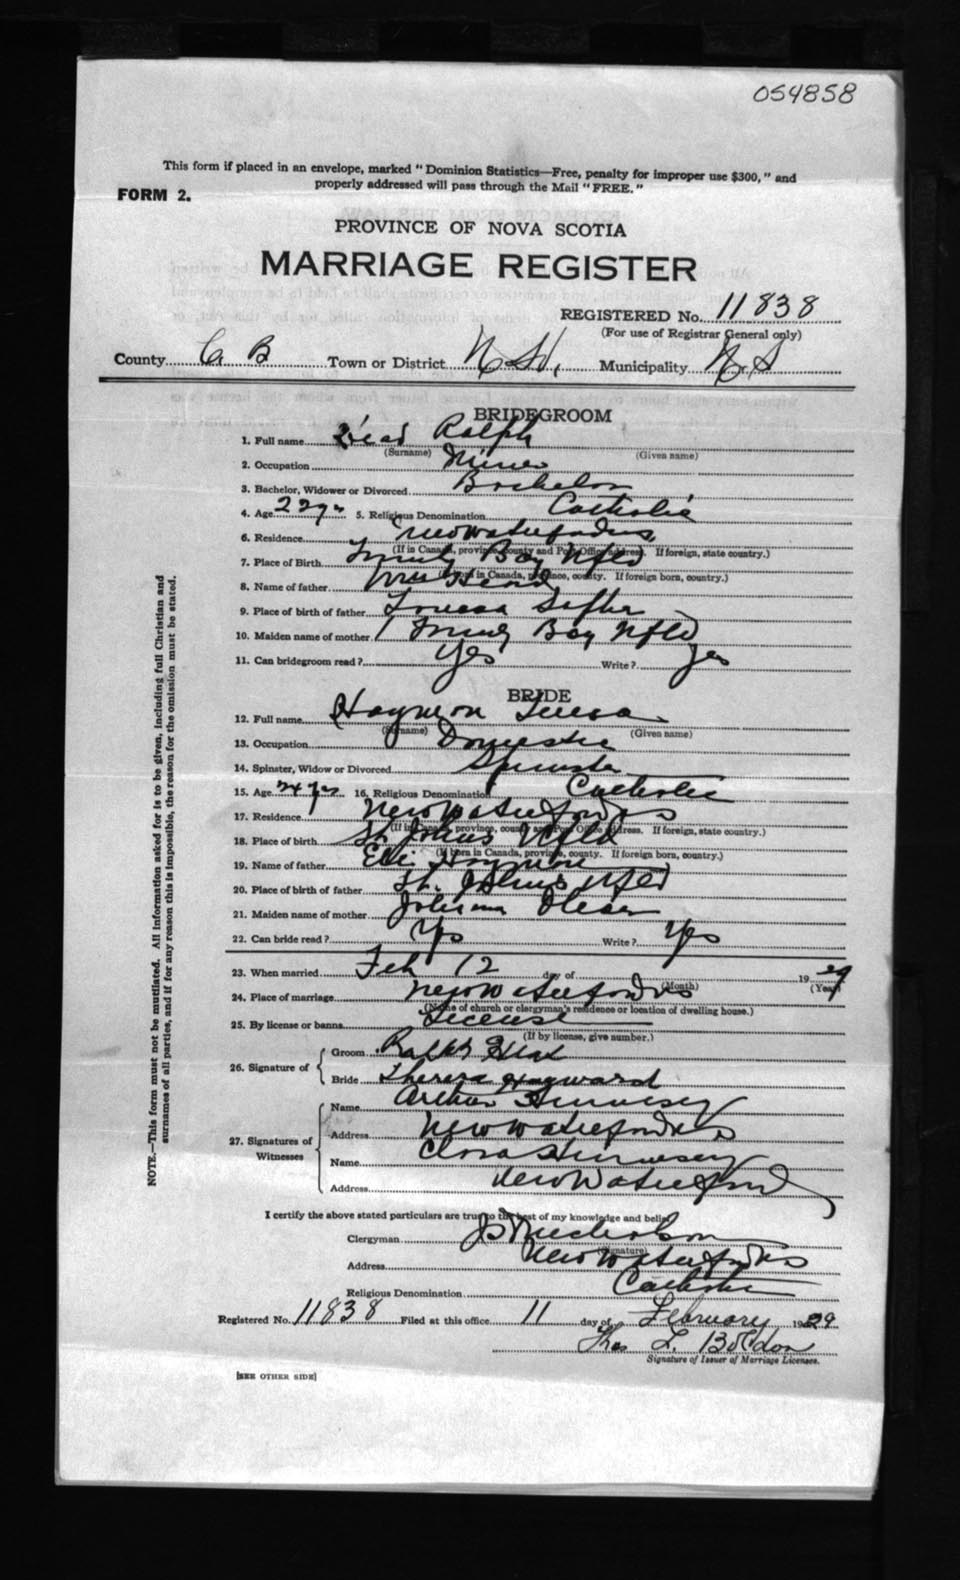 054858
This form if placed in an envelope, marked "Dominion Statistics—Free, penalty for improper use $300," and
properly addressed will pass through the Mail "FREE."
FORM 2.
PROVINCE OF NOVA SCOTIA
MARRIAGE REGISTER
REGISTERED No. 11838
(For use of Registrar General only)
County C. B Town or District Municipality N. S
BRIDEGROOM
1. Full name Head Ralph
(Surname) (Given name)
2. Occupation Miner
3. Bachelor, Widower or Divorced Bachelor
4. Age 22 yrs 5. Religious Denomination Catholic
6. Residence New Waterford
(If in Canada, province, county and Post Office address. If foreign, state country.)
7. Place of Birth Trinity Bay Nfld
(If born in Canada, province, county. If foreign born, country.)
8. Name of father Wm Head
9. Place of birth of father
10. Maiden name of mother Trinity Bay Nfld
11. Can bridegroom read? Yes Write? yes
BRIDE
12. Full name
(Surname) (Given name)
13. Occupation Domestic
14. Spinster, Widow or Divorced Spinster
15. Age 24 yrs 16. Religious Denomination Catholic
17. Residence New Waterford NS
(If in Canada, province, county and Post Office address. If foreign, state country.)
18. Place of birth St. Johns Nfld
(If born in Canada, province, county. If foreign born, country.)
19. Name of father
20. Place of birth of father St. Johns Nfld
21. Maiden name of mother
22. Can bride read? Yes Write? Yes
23. When married Feb 12 day of 1929
(Month) (Year)
24. Place of marriage New Waterford NS
(Name of church or clergyman's residence or location of dwelling house.)
25. By license or banns License
(If by license, give number.)
26. Signature of
Groom Ralph Head
Bride Theresa Hayward
27. Signatures of Witnesses
Name Arthur Hennesey
Address New Waterford NS
Name Clara Hennesey
Address New Waterford
I certify the above stated particulars are true to the best of my knowledge and belief.
Clergyman
(Signature)
Address New Waterford NS
Religious Denomination Catholic
Registered No. 11838 Filed at this office 11 day of February 1929
Thos L.
Signature of Issuer of Marriage Licenses.
[SEE OTHER SIDE]
NOTE.—This form must not be mutilated. All information asked for is to be given, including full Christian and
surnames of all parties, and if for any reason this is impossible, the reason for the omission must be stated.